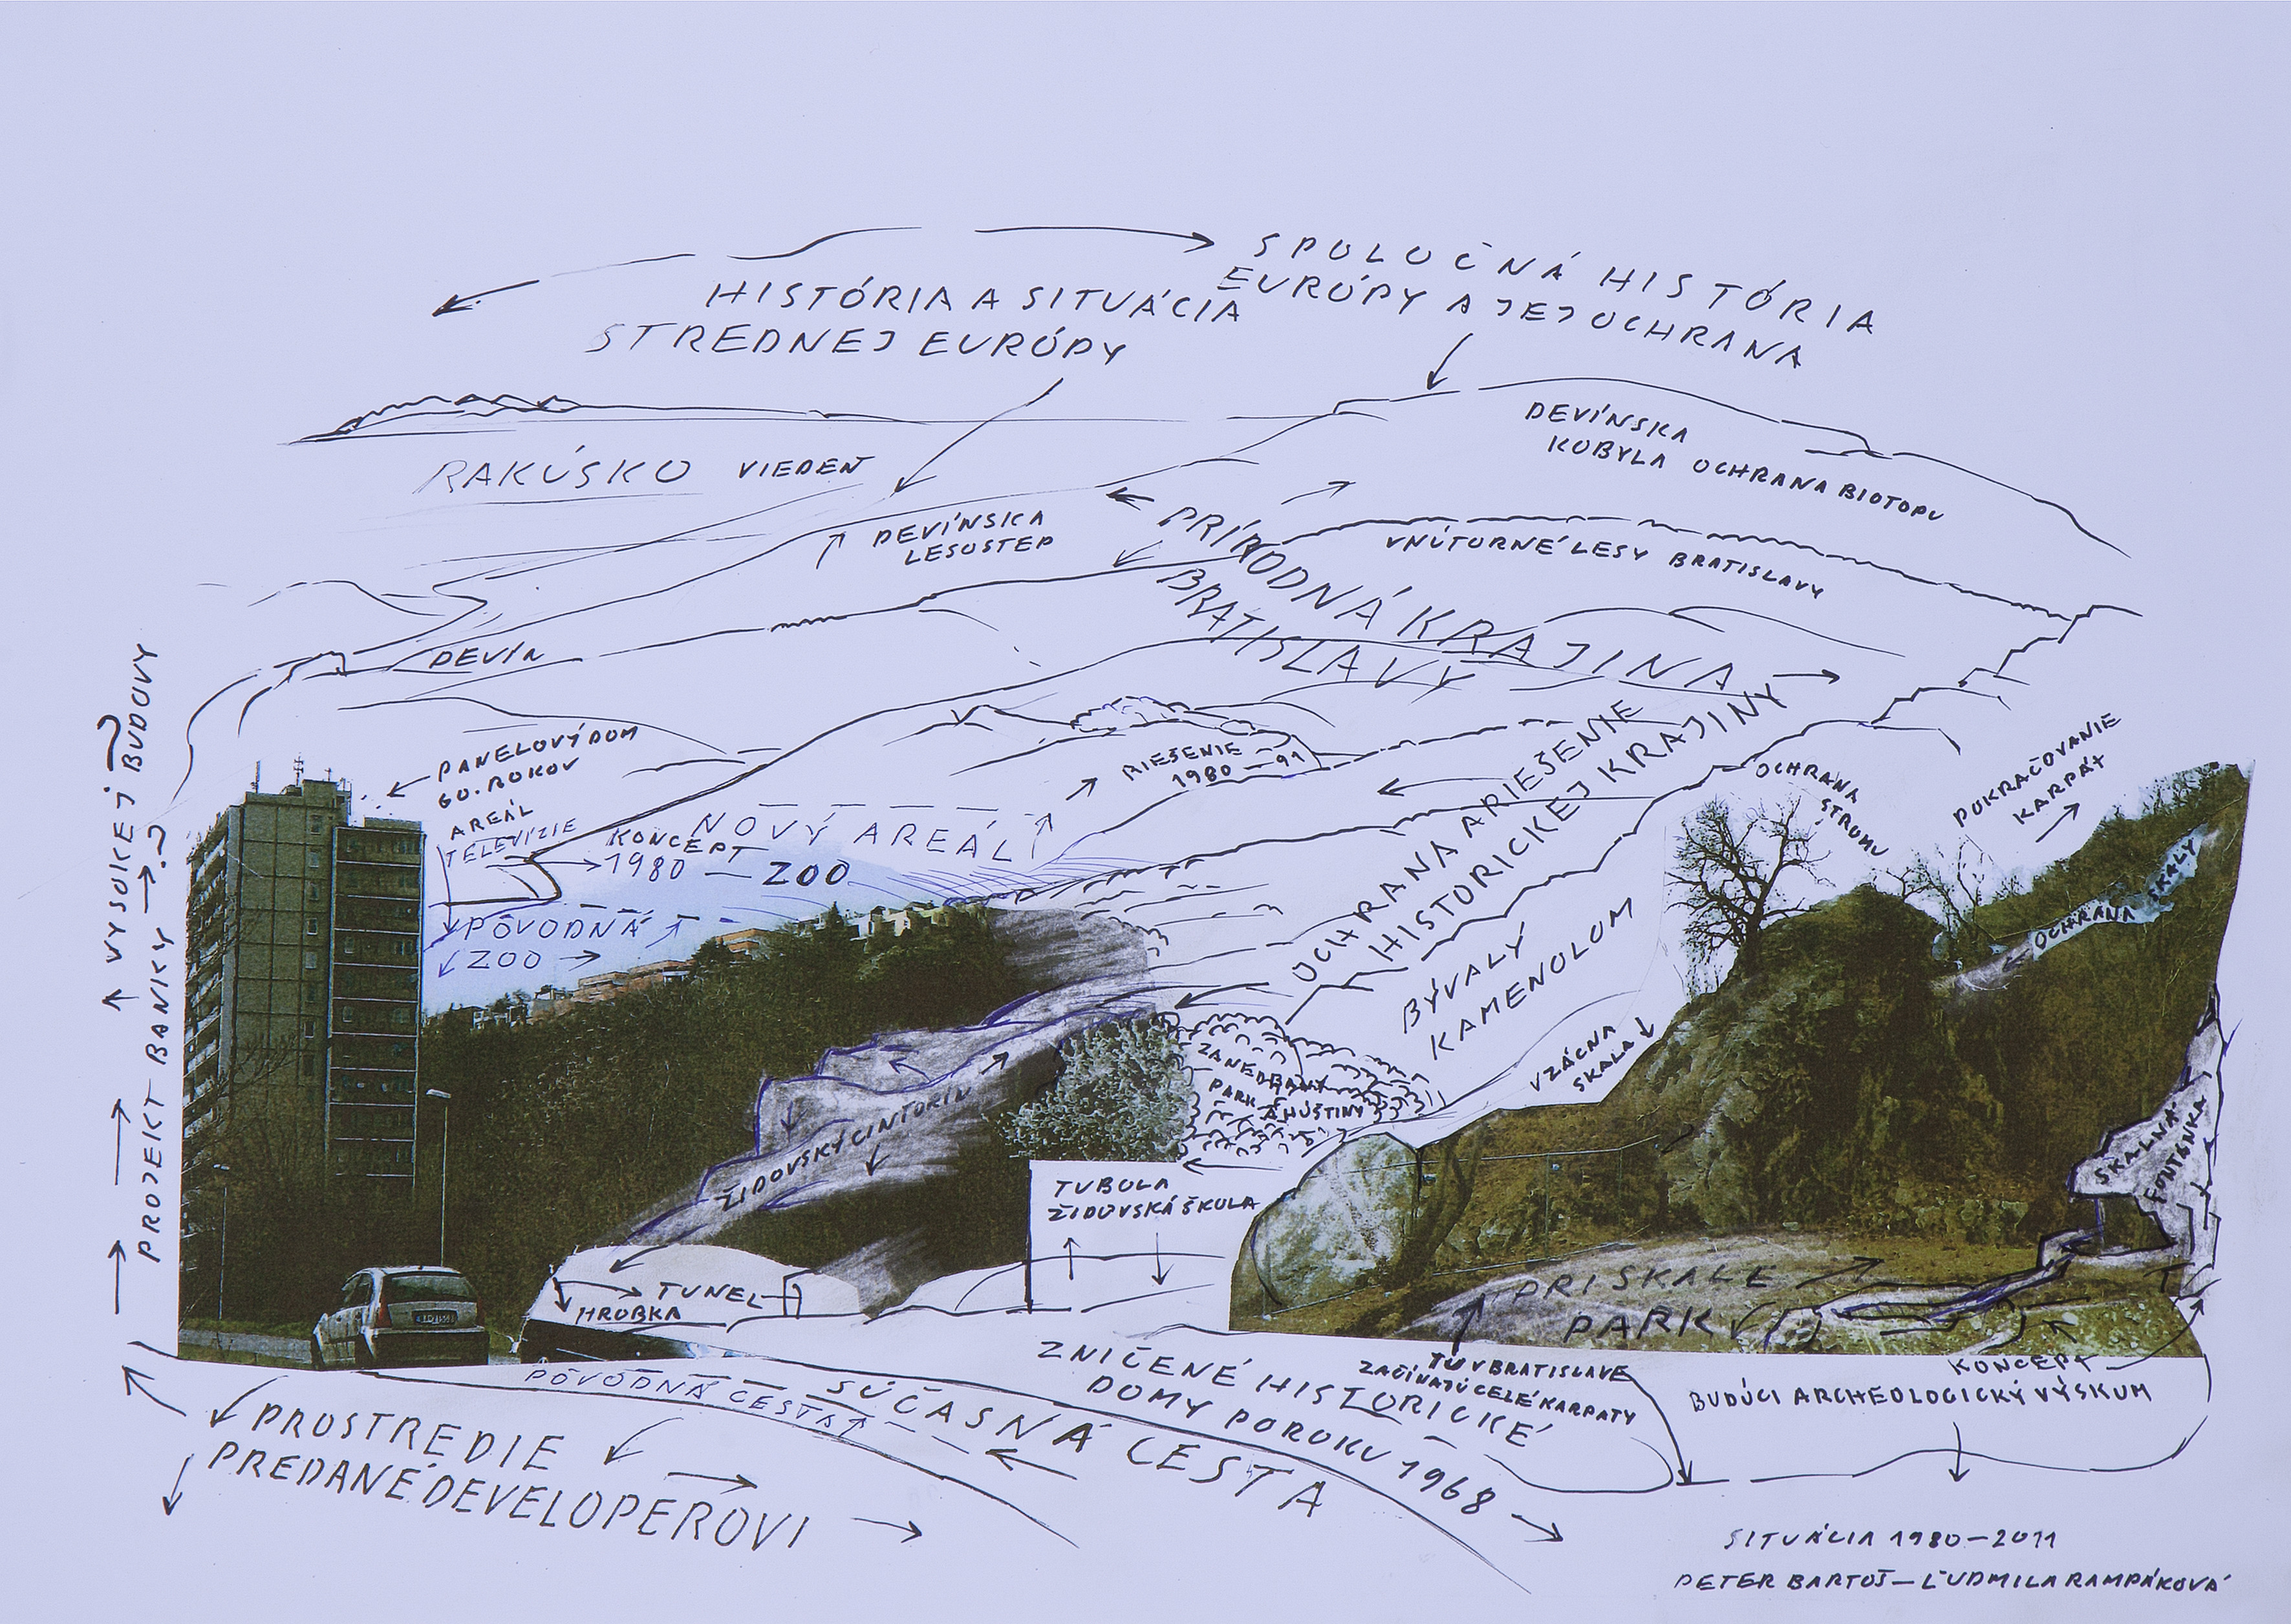 SPOLOČNÁ HISTÓRIA
EURÓPY A JEJ OCHRANA
HISTÓRIA A SITUÁCIA
STREDNEJ EURÓPY
DEVÍNSKA
KOBYLA OCHRANA BIOTOPU
RAKÚSKO VIEDEŇ
DEVÍNSKA
LESOSTEP
PRÍRODNÁ KRAJINA
BRATISLAVY
VNÚTORNÉ LESY BRATISLAVY
DEVÍN
PROJEKT BANIKY
VYSOKEJ BUDOVY
PANELOVÝ DOM
60. ROKOV
AREÁL
TELEVÍZIE
RIEŠENIE
1980-91
NOVÝ AREÁL
KONCEPT
1980 — ZOO
PÔVODNÁ
ZOO
OCHRANA A RIEŠENIE
HISTORICKEJ KRAJINY
OCHRANA
STROMU
POKRAČOVANIE
KARPÁT
OCHRANA SKALY
BÝVALÝ
KAMENOLOM
VZÁCNA
SKALA
ZANEDBANÝ
PARK A HÚŠTINY
ŽIDOVSKÝ CINTORÍN
SKALNÁ
FONTÁNKA
TUBOLA
ŽIDOVSKÁ ŠKOLA
TUNEL
HROBKA
PRI SKALE
PARK
TU V BRATISLAVE
ZAČÍNAJÚ CELÉ KARPATY
KONCEPT
BUDÚCI ARCHEOLOGICKÝ VÝSKUM
ZNIČENÉ HISTORICKÉ
DOMY PO ROKU 1968
PÔVODNÁ CESTA
SÚČASNÁ CESTA
PROSTREDIE
PREDANÉ DEVELOPEROVI
SITUÁCIA 1980-2011
PETER BARTOŠ-ĽUDMILA RAMPÁKOVÁ